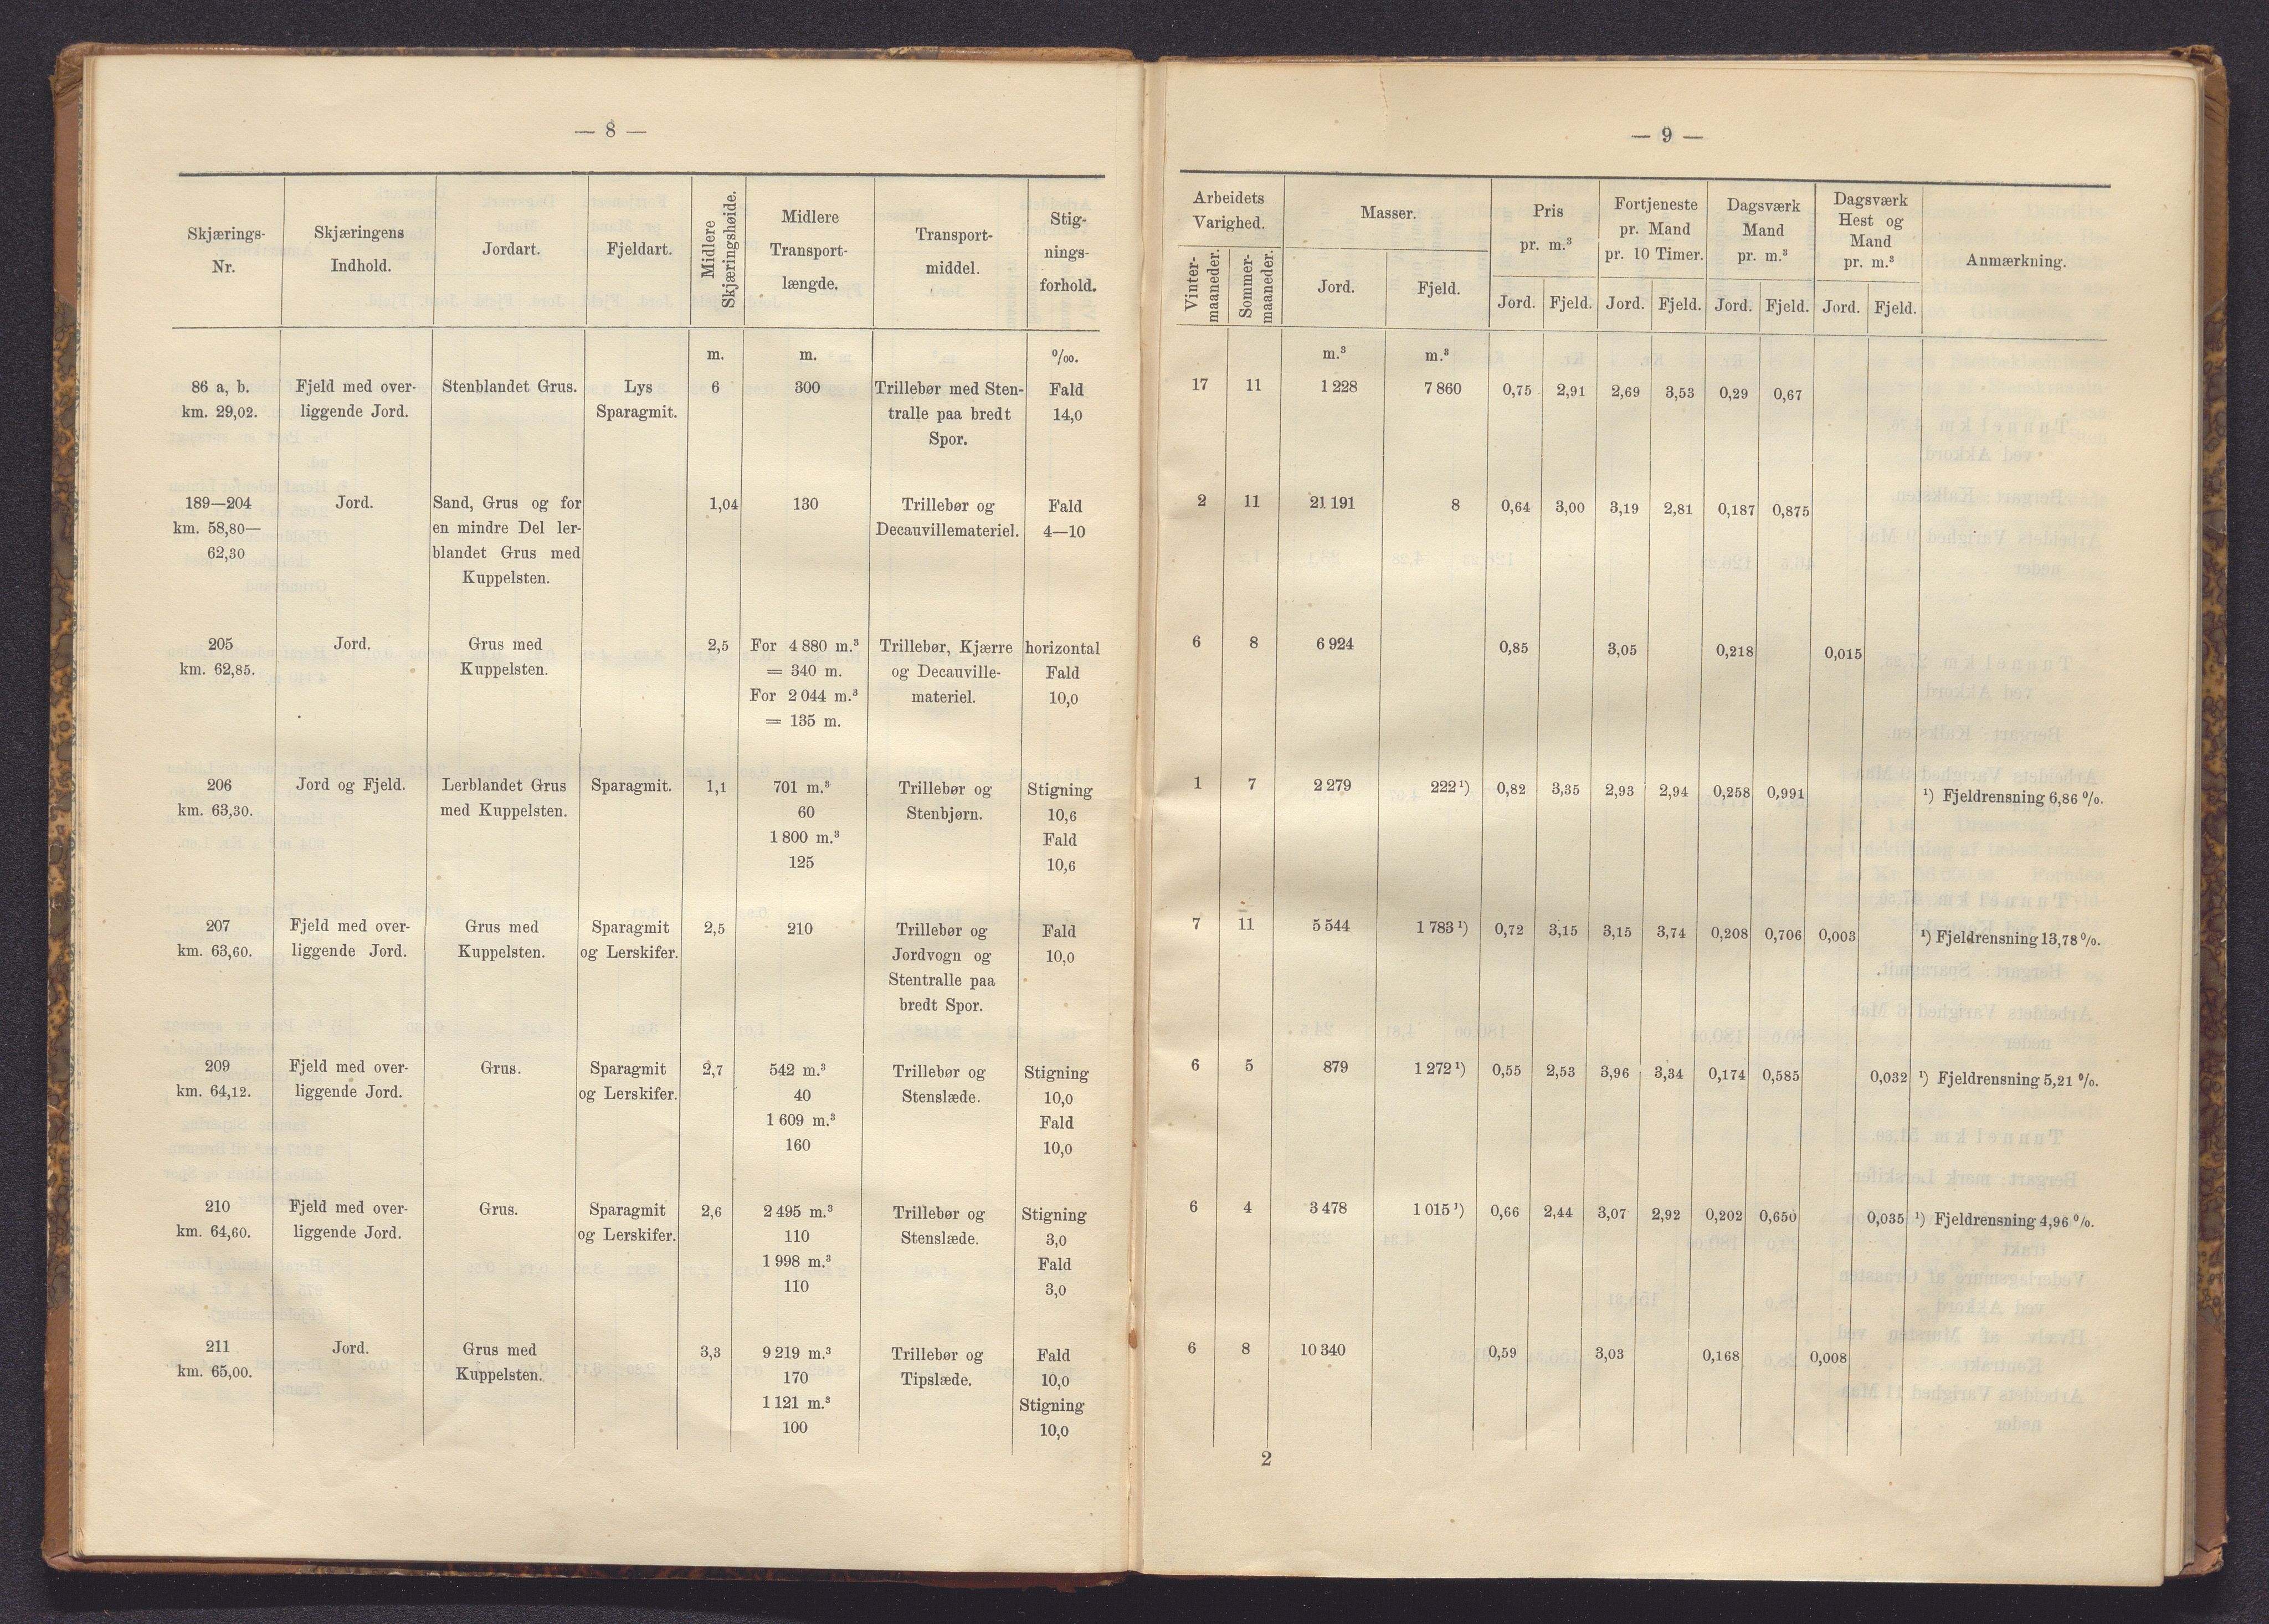 — 8 —
Skjærings-
Nr.
Skjæringens
Indhold.
Jordart.
Fjeldart.
Midlere
Skjæringshøide.
Midlere
Transport-
længde.
Transport-
middel.
Stig-
nings-
forhold.
m.
m.
⁰/₀₀.
86 a, b. Fjeld med over- Stenblandet Grus. Lys 6 300 Trillebør med Sten- Fald
km. 29,02. liggende Jord. Sparagmit. tralle paa bredt 14,0
Spor.
189—204 Jord. Sand, Grus og for 1,04 130 Trillebør og Fald
km. 58,80— en mindre Del ler- Decauvillemateriel. 4—10
62,30 blandet Grus med
Kuppelsten.
205 Jord. Grus med 2,5 For 4 880 m.³ Trillebør, Kjærre horizontal
km. 62,85. Kuppelsten. = 340 m. og Decauville- Fald
For 2 044 m.³ materiel. 10,0
= 135 m.
206 Jord og Fjeld. Lerblandet Grus Sparagmit. 1,1 701 m.³ Trillebør og Stigning
km. 63,30. med Kuppelsten. 60 Stenbjørn. 10,6
1 800 m.³ Fald
125 10,6
207 Fjeld med over- Grus med Sparagmit 2,5 210 Trillebør og Fald
km. 63,60. liggende Jord. Kuppelsten. og Lerskifer. Jordvogn og 10,0
Stentralle paa
bredt Spor.
209 Fjeld med over- Grus. Sparagmit 2,7 542 m.³ Trillebør og Stigning
km. 64,12. liggende Jord. og Lerskifer. 40 Stenslæde. 10,0
1 609 m.³ Fald
160 10,0
210 Fjeld med over- Grus. Sparagmit 2,6 2 495 m.³ Trillebør og Stigning
km. 64,60. liggende Jord. og Lerskifer. 110 Stenslæde. 3,0
1 998 m.³ Fald
110 3,0
211 Jord. Grus med 3,3 9 219 m.³ Trillebør og Fald
km. 65,00. Kuppelsten. 170 Tipslæde. 10,0
1 121 m.³ Stigning
100 10,0
— 9 —
Arbeidets
Varighed.
Vinter-
maaneder.
Sommer-
maaneder.
Masser.
Jord. Fjeld.
Pris
pr. m.³
Jord. Fjeld.
Fortjeneste
pr. Mand
pr. 10 Timer.
Jord. Fjeld.
Dagsværk
Mand
pr. m.³
Jord. Fjeld.
Dagsværk
Hest og
Mand
pr. m.³
Jord. Fjeld.
Anmærkning.
m.³ m.³
17 11 1 228 7 860 0,75 2,91 2,69 3,53 0,29 0,67
2 11 21 191 8 0,64 3,00 3,19 2,81 0,187 0,875
6 8 6 924 0,85 3,05 0,218 0,015
1 7 2 279 222 ¹) 0,82 3,35 2,93 2,94 0,258 0,991 ¹) Fjeldrensning 6,86 ⁰/₀.
7 11 5 544 1 783 ¹) 0,72 3,15 3,15 3,74 0,208 0,706 0,003 ¹) Fjeldrensning 13,78 ⁰/₀.
6 5 879 1 272 ¹) 0,55 2,53 3,96 3,34 0,174 0,585 0,032 ¹) Fjeldrensning 5,21 ⁰/₀.
6 4 3 478 1 015 ¹) 0,66 2,44 3,07 2,92 0,202 0,650 0,035 ¹) Fjeldrensning 4,96 ⁰/₀.
6 8 10 340 0,59 3,03 0,168 0,008
2